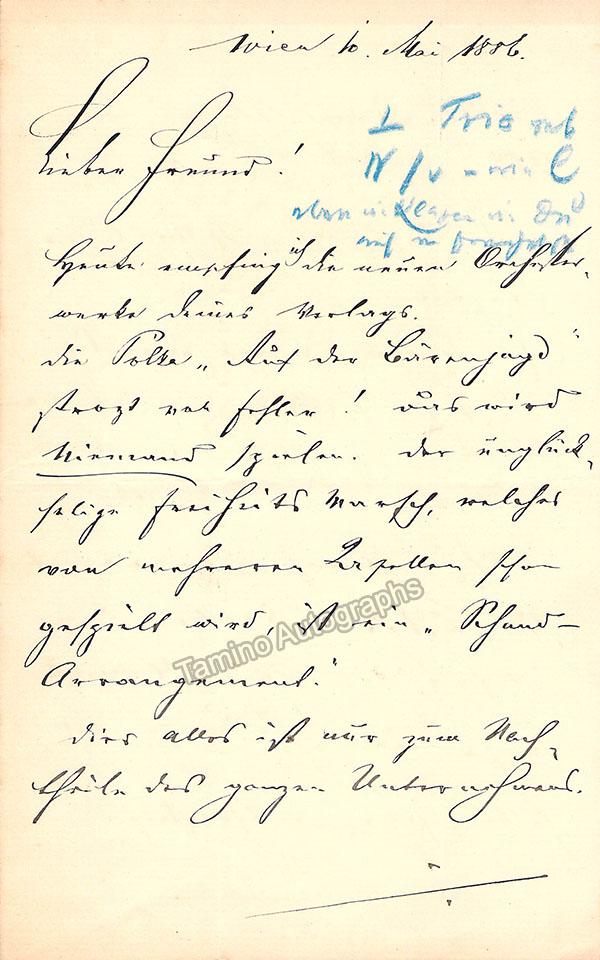 Wien 10. Mai 1886.
Lieber Freund!
1 Trio
Heute empfing ich die neuen Orchester-
werke Deines Verlags.
die Polka „Auf der Bärenjagd"
strozt von Fehler! Das wird
Niemand spielen. Der unglück-
selige Freiheits Marsch, welcher
von mehreren Kapellen schon
gespielt wird, ist ein „Schand-
Arrangement."
Dies alles ist nur zum Nach-
theile des ganzen Unternehmens.
Tamino Autographs